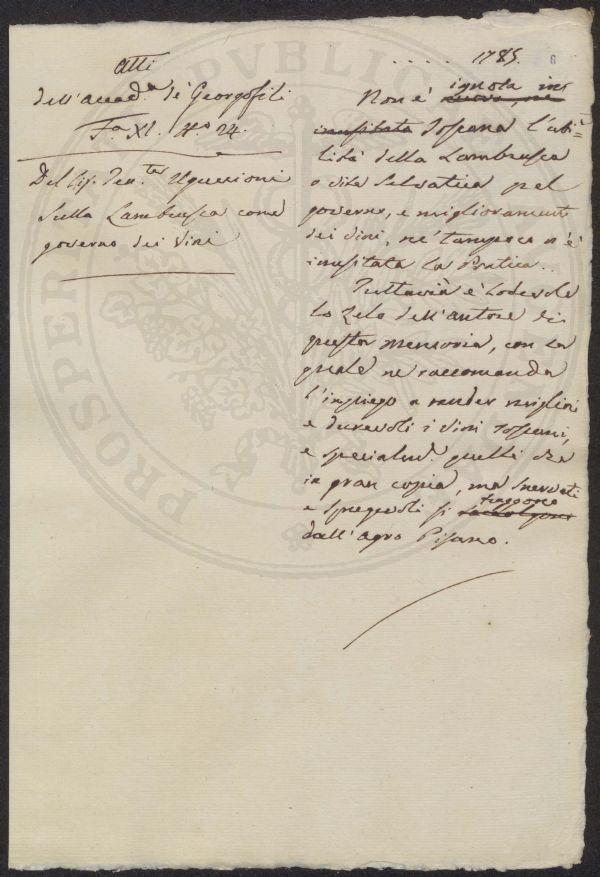 Atti
dell'Accad.a de' Georgofili
F.a XI. N.o 24.
Del Sig. Ten.te Uguccioni
Sulla Lambrusca come
governo dei Vini
. . . . . 1785.
Non è ignota in
nuova, nè
inusitata Toscana l'uti=
lità della Lambrusca
o vite Selvatica pel
governo, e miglioramento
dei Vini, nè tampoco n'è
inusitata la Pratica.
Tuttavia è Lodevole
lo Zelo dell'autore di
questa memoria, con la
quale ne raccomanda
l'impiego a render migliori
e durevoli i Vini Toscani,
e specialm. quelli che
in gran copia, ma snervati
e spregevoli si traggono
dall'agro Pisano.
PROSPERI
PVBLICAE